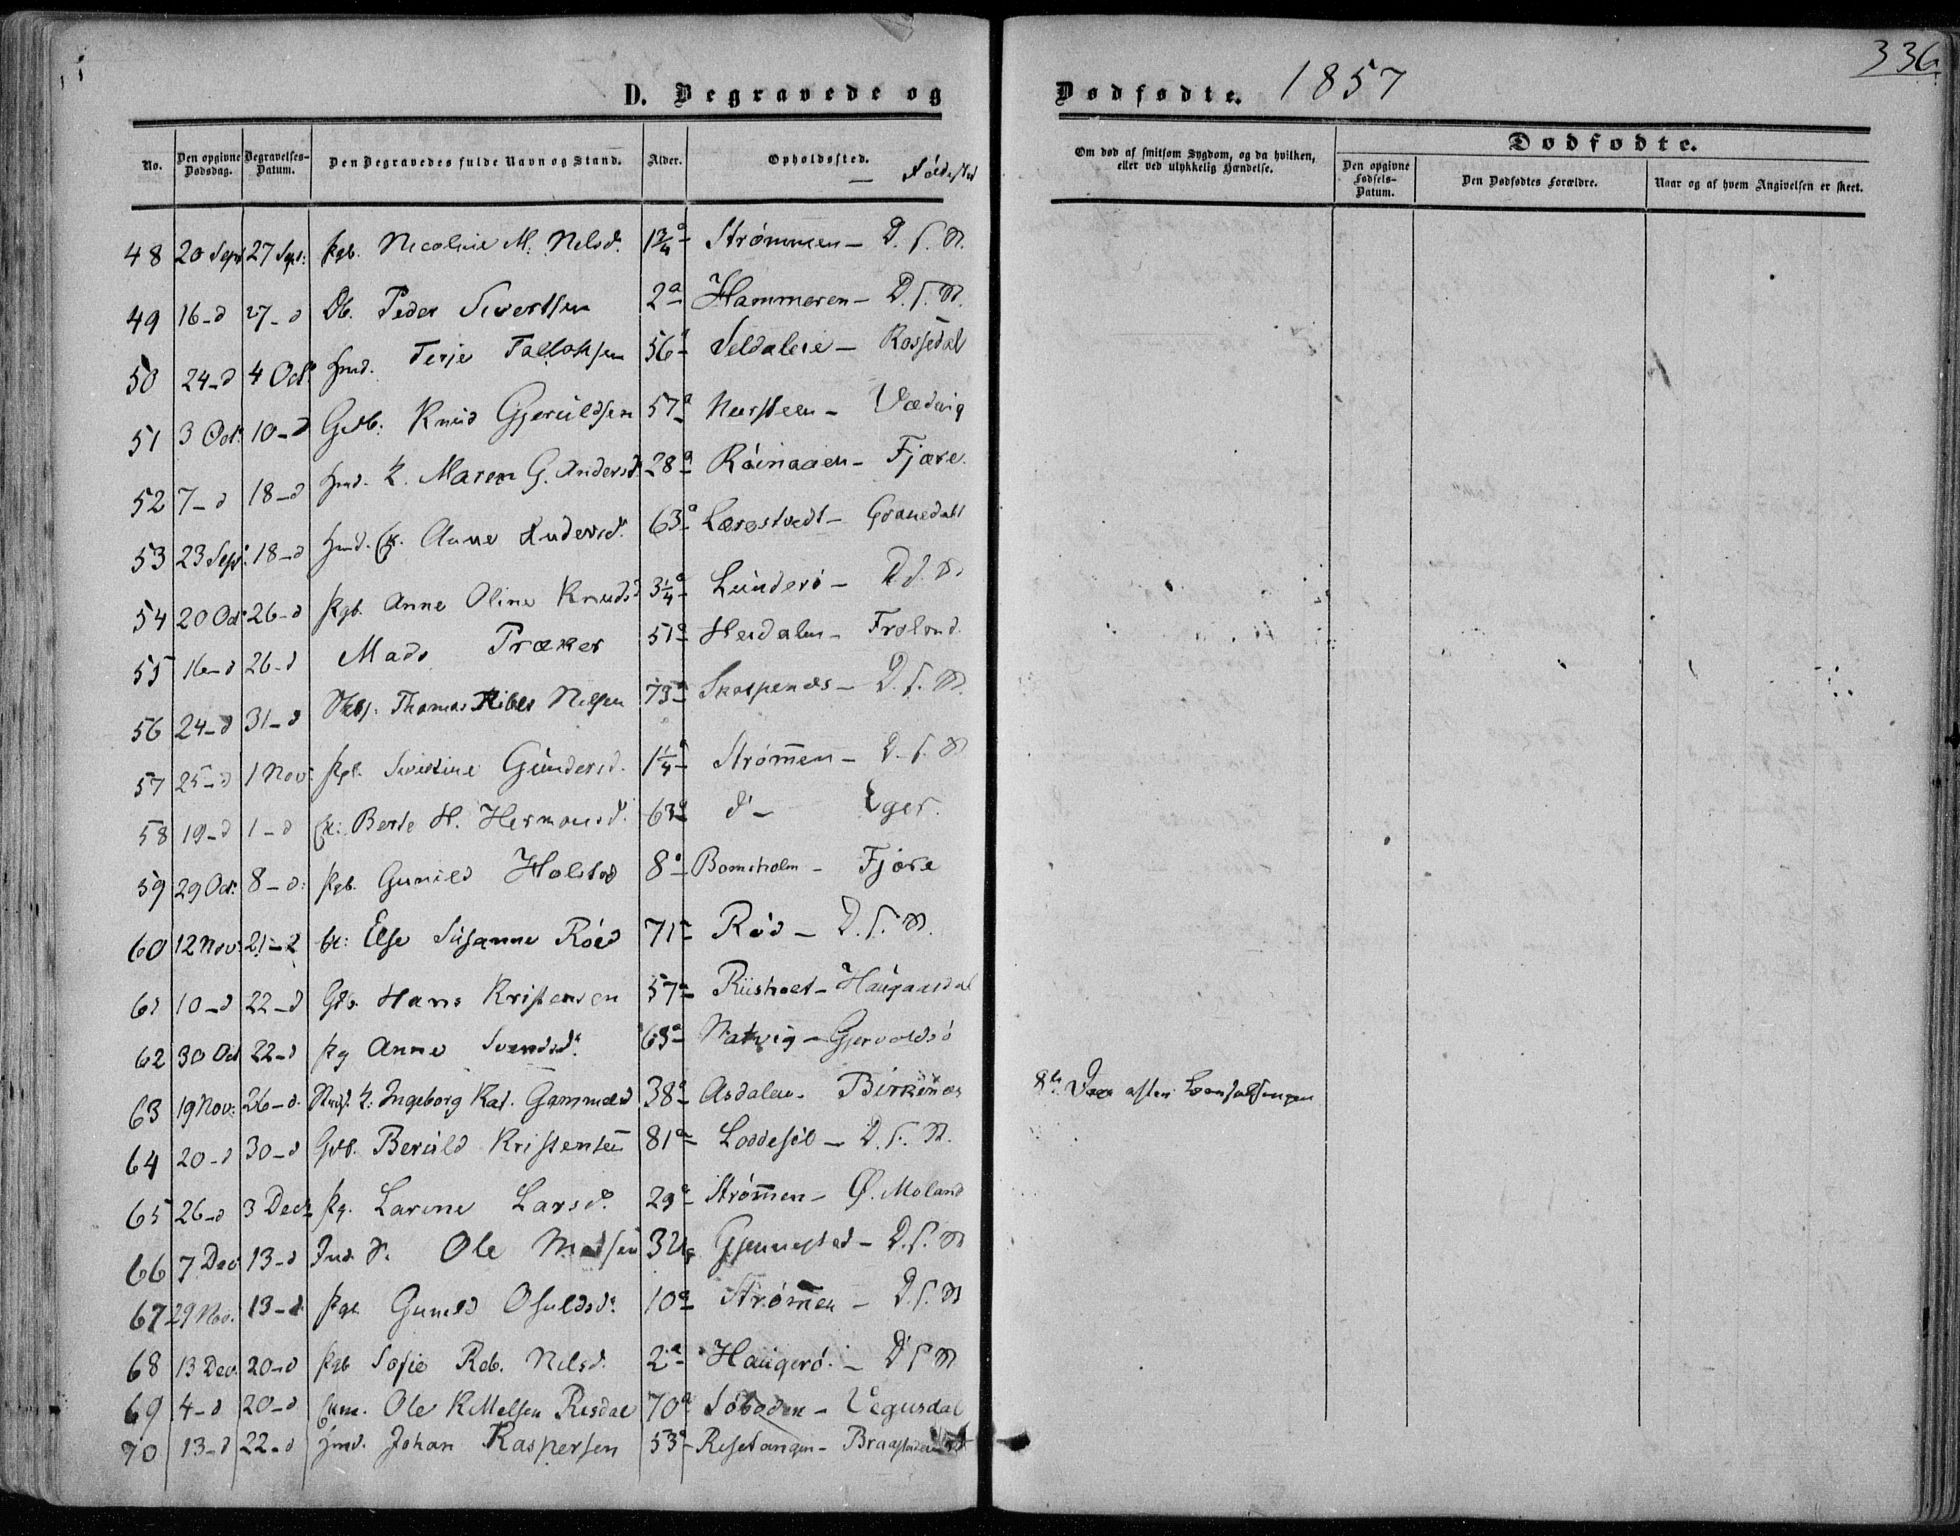 336
D. Begravede og Dødfødte. 1857
No. Den opgivne Dødsdag. Begravelses-Datum. Den Begravedes fulde Navn og Stand. Alder. Opholdssted. — Fødested
Om død af smitsom Sygdom, og da hvilken, eller ved ulykkelig Hændelse.
Dødfødte.
Den opgivne Fødsels-Datum. Den Dødfødtes Forældre. Naar og af hvem Angivelsen er skeet.
48 20 Sept 27 Sept: Pgb. Nicoline M. Nelsd. 1¾ a Strømmen — D. S. St.
49 16 - d 27 - d Db. Peder Sivertsen 2 a Hammeren — D. S. St.
50 24 - d 4 Oct. Hmd. Terje Tallaksen 56 a — Rossedal
51 3 Oct. 10 - d Gdb. Knud Gjeruldsen 57 a Nersteen —
52 7 - d 18 - d Hmd. K. Maren G. Andersd. 28 a — Fjære.
53 23 Sept. 18 - d Hmd. E. Anne Andersd. 63 a —
54 20 Oct 26 - d Pgb. Anne Oline Knudsd 3¼ a Lunderø — D. S. St.
55 16 - d 26 - d Mads Træker 51 a Heidalen — Froland.
56 24 - d 31 - d Thomas Nelsen 73 a — D. S. St.
57 25 - d 1 Nov: Pgb. Sivertine Gundersd. 1¼ a Strømmen — D. S. St.
58 19 - d 1 - d E: Berte H. Hermansd. 63 a d - Eger.
59 29 Oct. 8 - d: Pgb. Gunild Holstad 8 a Bomsholm — Fjære
60 12 Nov: 21 - d E: Else Susanne Røed 71 a Rød — D. S. St.
61 10 - d 22 - d Gdb. Hans Kristensen 57 a — Haugaasdal
62 30 Oct 22 - d Pg Anne Svendsd. 63 a Natvig — Gjervoldsø
63 19 Nov: 26 - d. K: Ingeborg Kat. Gammelsd 38 a Asdalen — Birkenæs
64 20 - d 30 - d Gdb. Beruld Kristensen 81 a Loddesøl — D. S. St.
65 26 - d 3 Dec. Pg. Larine Larsd. 29 a Strømmen — Ø. Moland
66 7 Dec 13 - d Ind. Ole Madsen 32 — D. S. St
67 29 Nov. 13 - d Pgb. Gunild Osuldsd. 10 a Strømmen — D. S. St
68 13 Dec. 20 - d Pgb Sofie Reb. Nelsd. 2 a Haugerø. — D S St
69 4 - d 20 - d Ole K. Risdal 70 a Søboden — Vegusdal
70 13 - d 22 - d Hmd. Johan Kaspersen 53 a Resetangen —